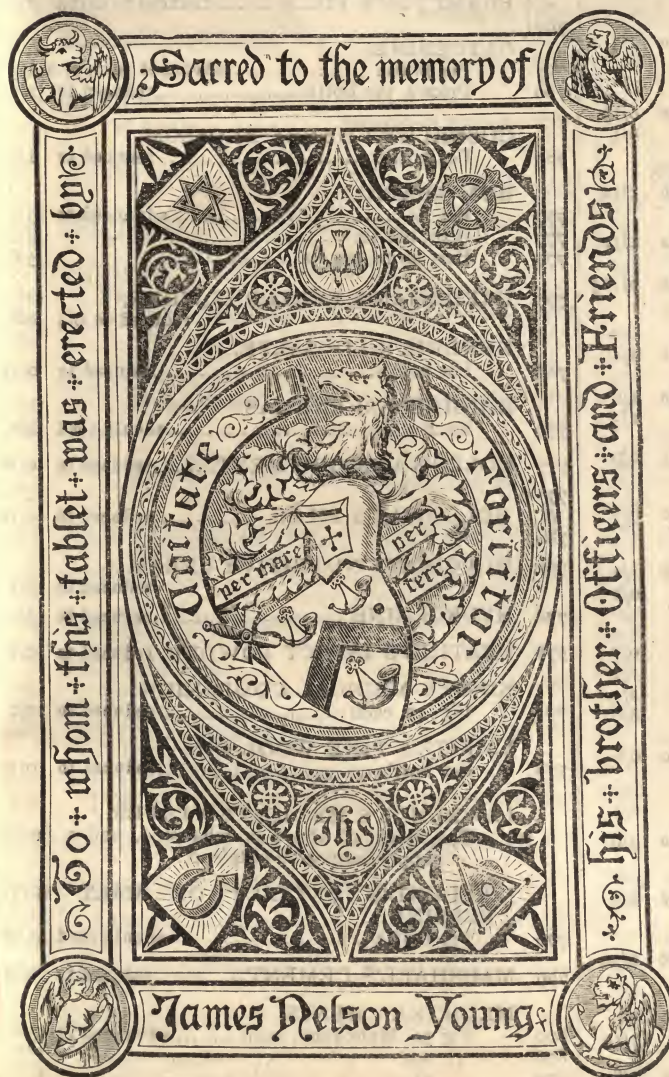 Sacred to the memory of
James Nelson Young
To whom this tablet was erected by
his brother Officers and Friends
Fortitor
per mare
per
Ihs